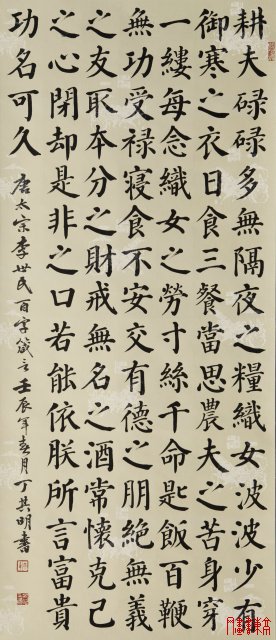 耕夫碌碌多無隔夜之糧織女波波少有
御寒之衣日食三餐當思農夫之苦身穿
一縷每念織女之勞寸絲千命匙飯百鞭
無功受禄寢食不安交有德之朋絶無義
之友取本分之財戒無名之酒常懷克己
之心閉却是非之口若能依朕所言富貴
功名可久
唐太宗李世民百字箴言壬辰年春月丁其明書